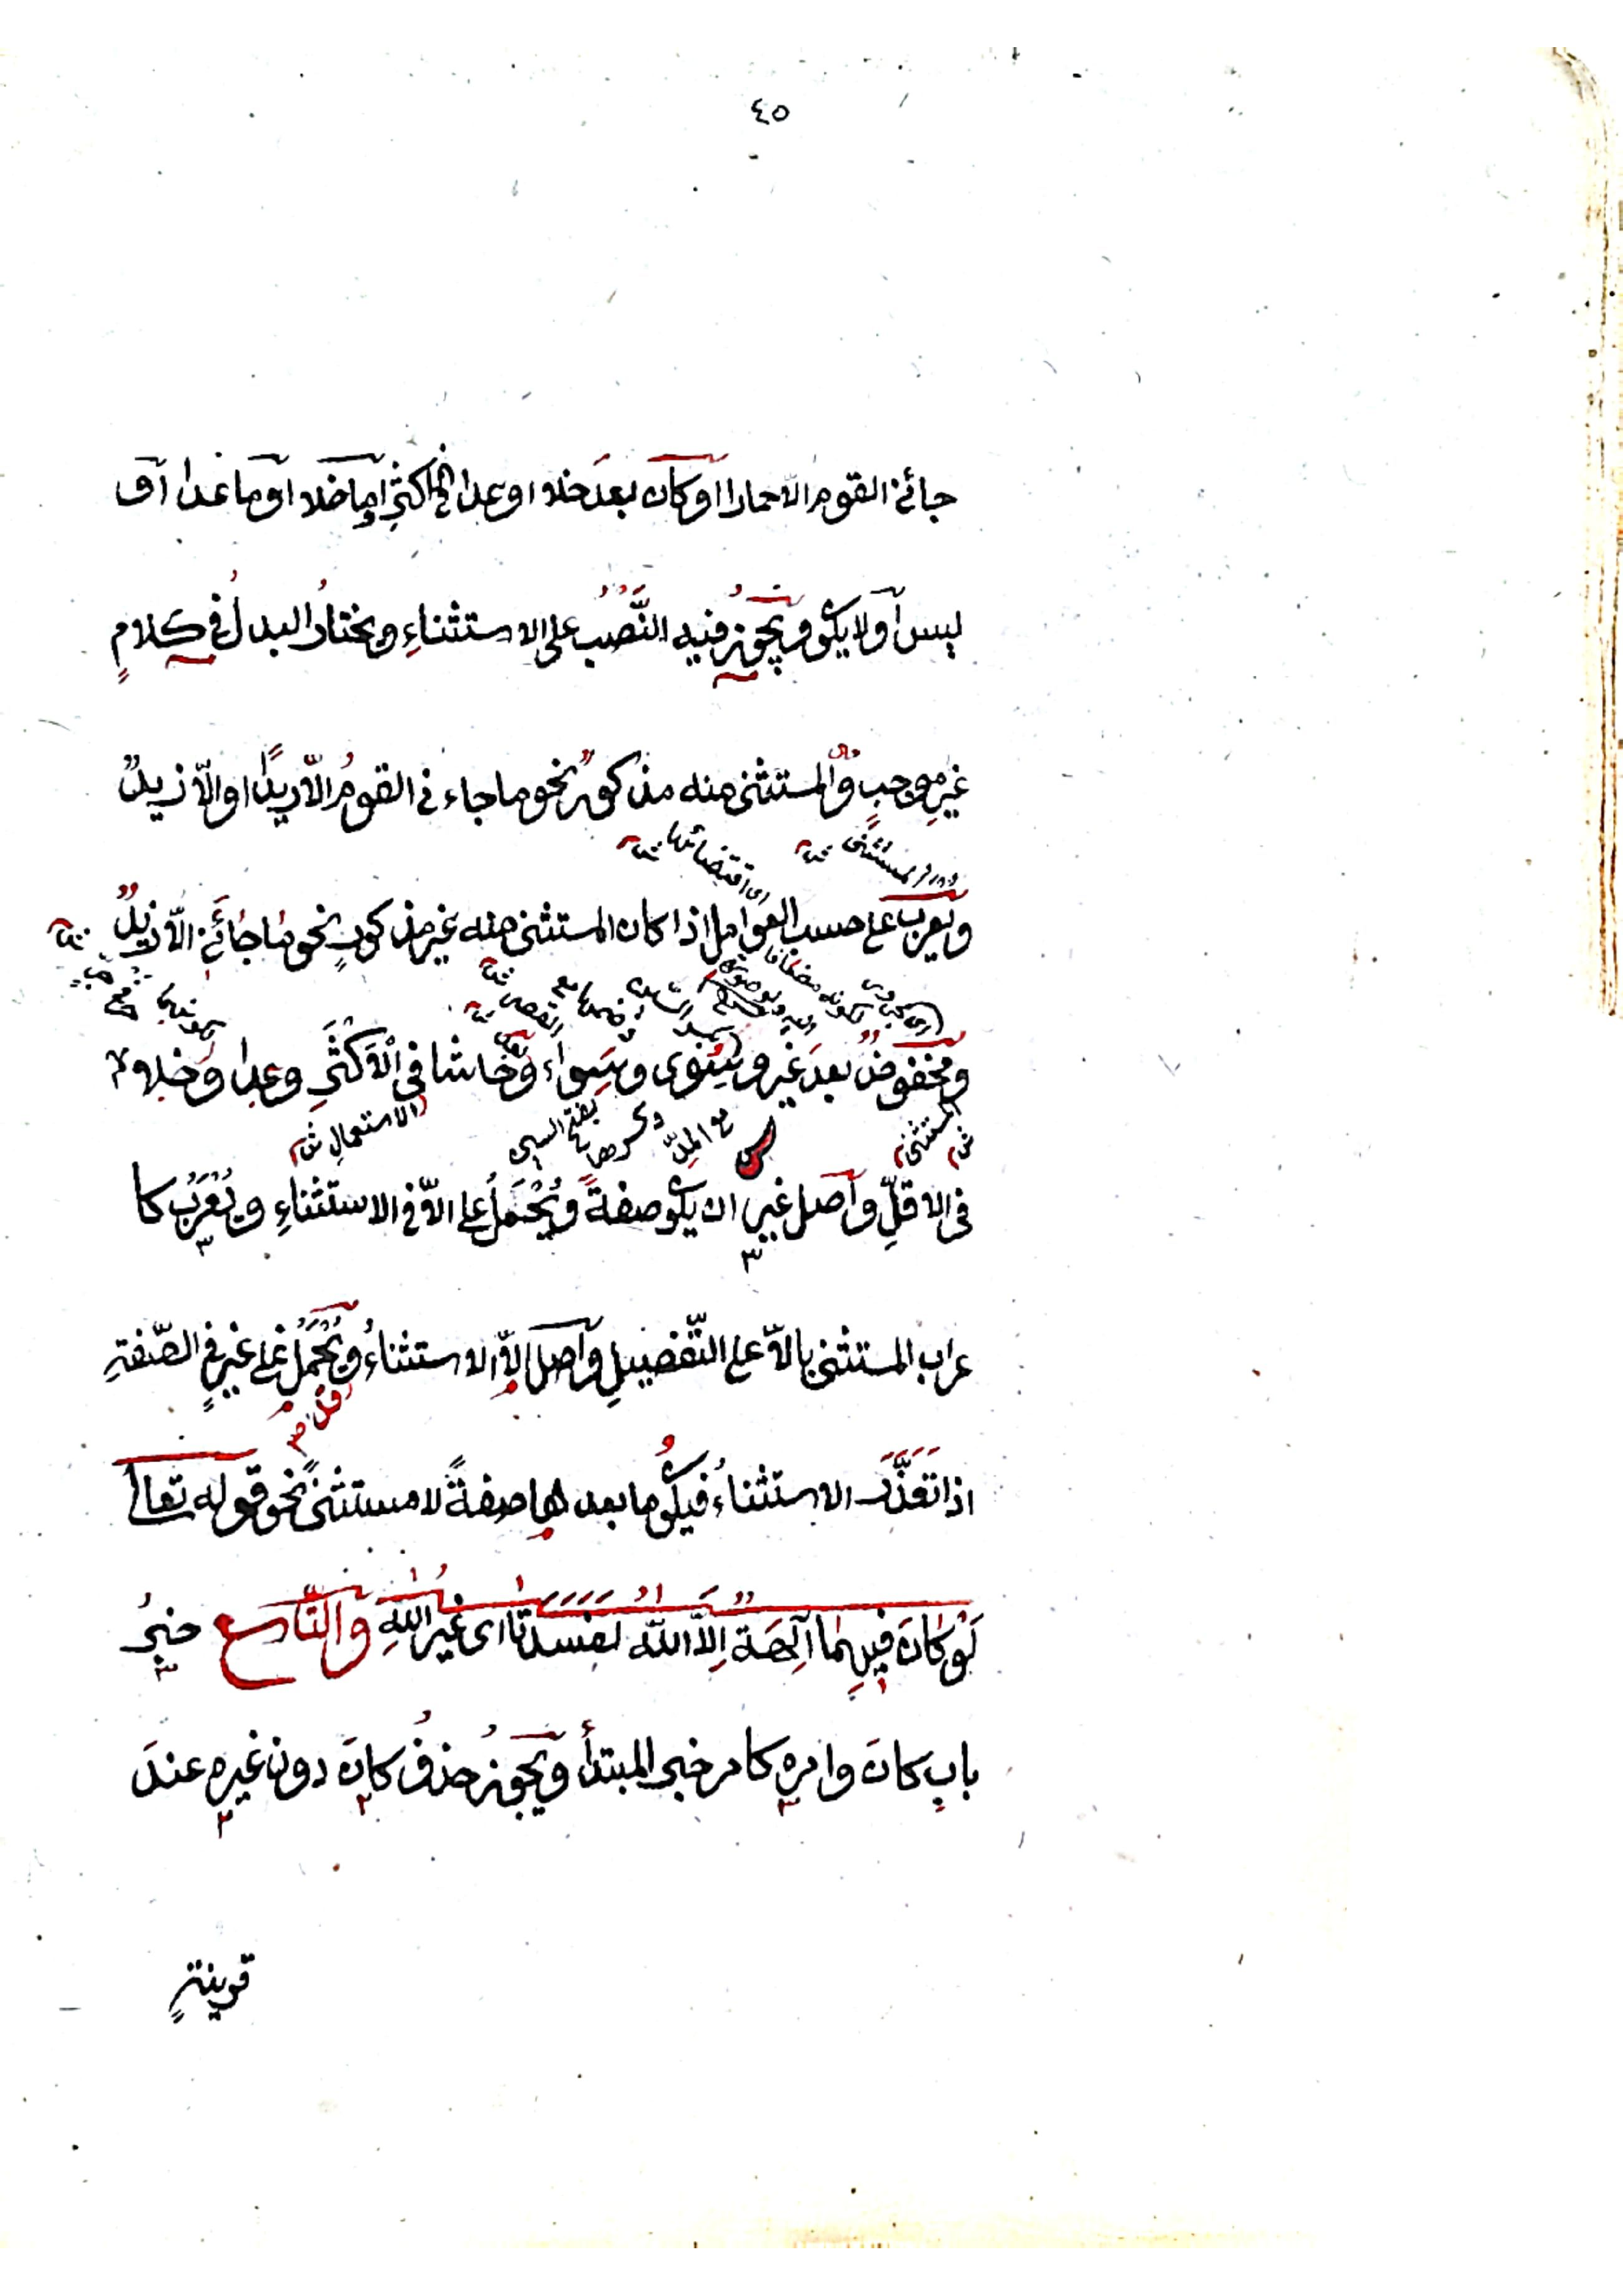 ٤٥
جائنى القوم الّا حمارا او كان بعد خلا او عدا فى الاكثر او ما خلا او ما عدا او
ليس او لا يكون ويجوز فيه النَّصْبُ على الاستثناءِ ويختارُ البدلُ فى كلامٍ
غيرِ موجبٍ والمستثنى منه مذكورٌ نحو ما جاءنى القومُ الّا زيدًا او الّا زيدٌ
ويعرب على حسب العوامل اذا كان المستثنى منه غير مذكورٍ نحو ما جائنى الّا زيدٌ
ومخفوضٌ بعدَ غير وسِوى وسِواء وحاشا فى الْاَكْثَرِ وعدا وخلا
فى الاقلِّ واصل غير ان يكون صفةً ويُحْمَلُ على الّا فى الاستثناءِ ويُعْرَبُ كا
عراب المستثنى بالّا على التّفضيلِ واصل الّا الاستثناءُ ويُحْمَلُ على غيرٍ فى الصّفةِ
اذا تَعَذَّرَ الاستثناءُ فيكونُ ما بعدها صفةً لا مستثنىً نحو قوله تعالى
لَوْ كَانَ فِيهِمَا آلِهَةٌ اِلَّا اللّٰهُ لَفَسَدَتَا اى غيرُ اللّٰهِ والتّاسع خبرُ
بابِ كانَ وامره كامر خبر المبتدأ ويجوزُ حذفُ كانَ دون غيره عندَ
قرينةٍ